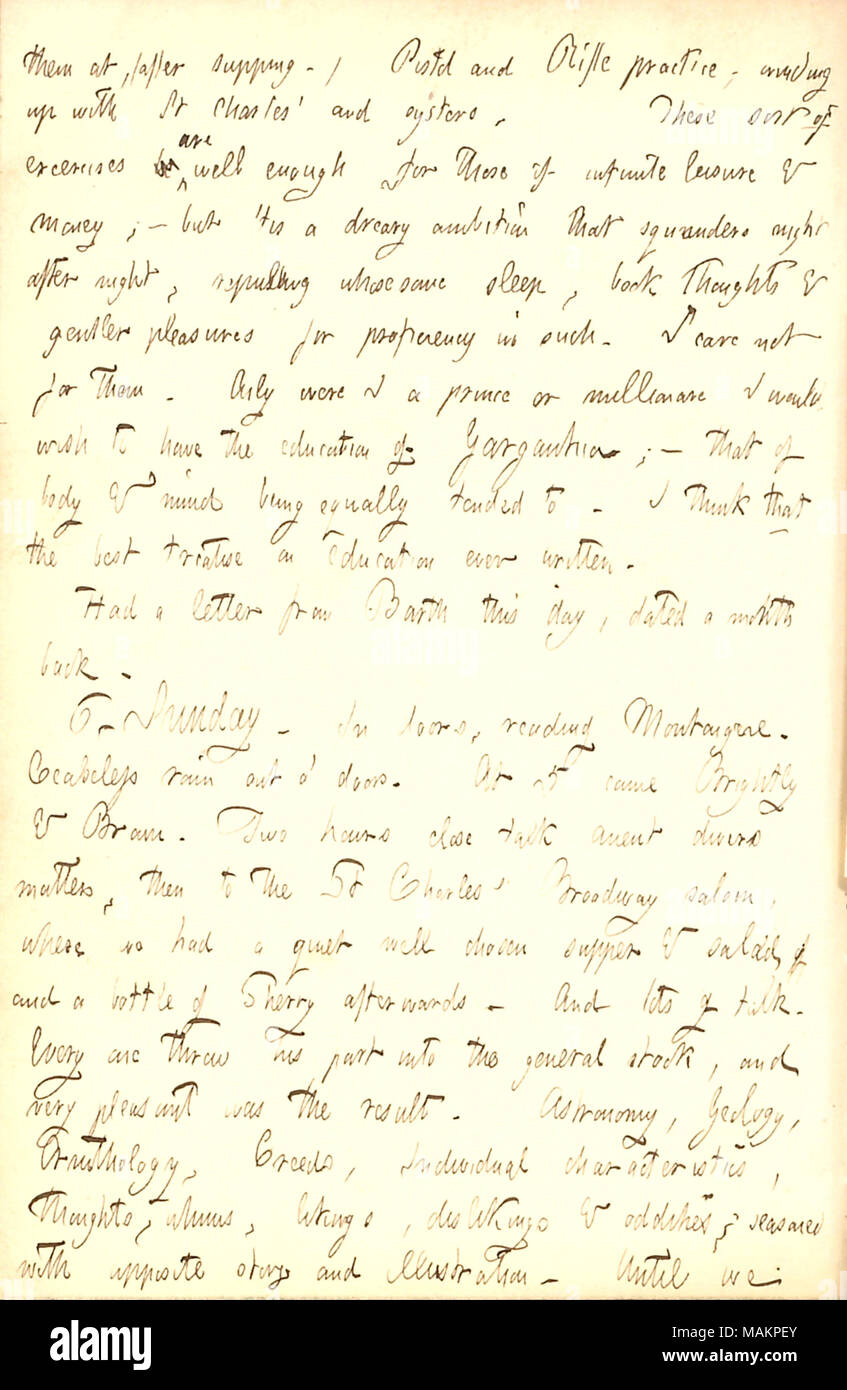 them at, (after supping - ) Pistol and Rifle practice, winding
up with St Charles' and oysters. These sort of
excercises are well enough for those of infinite leisure &
money ; — but 'tis a dreary ambition that squanders night
after night, repulsing wholesome sleep, book thoughts &
gentler pleasures for proficiency in such. I care not
for them. Only were I a prince or millionare I would
wish to have the education of Gargantua ; — that of
body & mind being equally tended to. I think that
the best treatise on Education ever written.
Had a letter from Barth this day, dated a month
back.
6. Sunday. In doors, reading Montaigne.
Ceaseless rain out o' doors. At 5 came Brightly
& Brown. Two hours close talk anent divers
matters, then to the St Charles' Broadway saloon,
where we had a quiet well chosen supper & salad,
and a bottle of Sherry afterwards. And lots of talk.
Every one threw his part into the general stock, and
very pleasant was the result. Astronomy, Geology,
Ornithology, Creeds, Individual characteristics,
thoughts, whims, likings, dislikings & oddities, seasoned
with opposite story and illustration. Until we
alamy
Image ID: MAKPEY
www.alamy.com